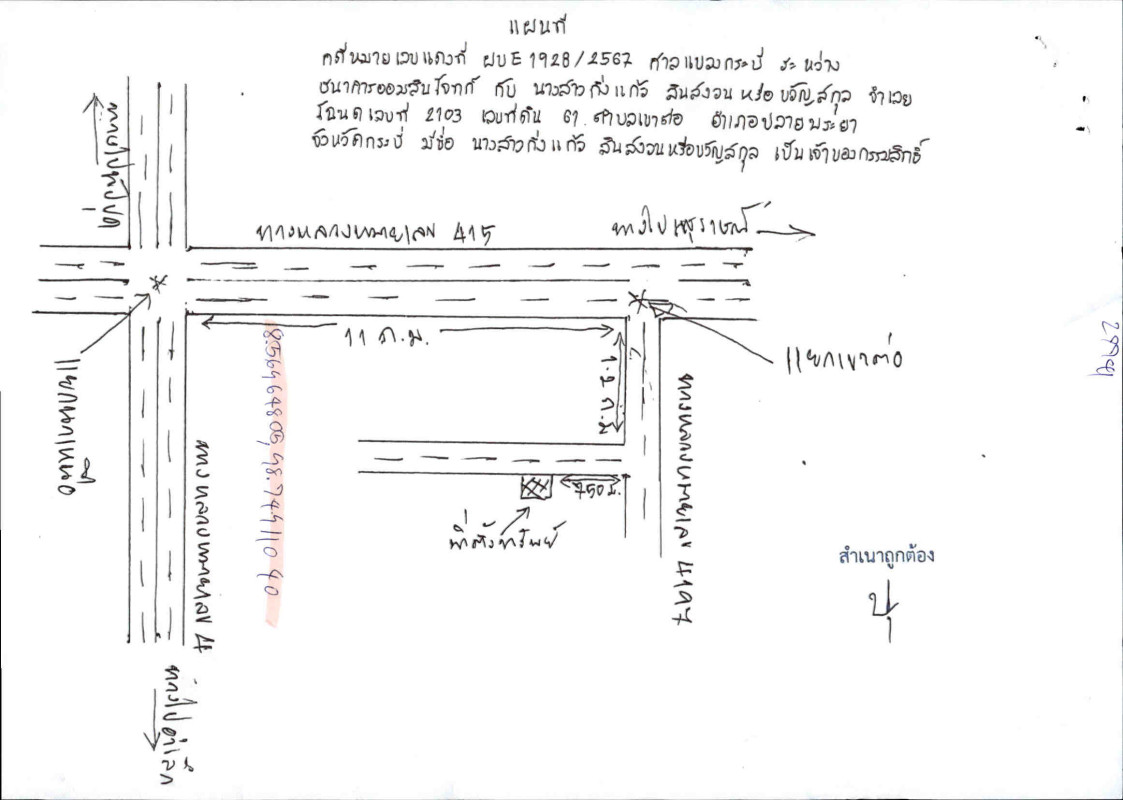 แผนที่
คดีหมายเลขแดงที่ ผบE 1928/2567 ศาลแขวงกระบี่ ระหว่าง
ธนาคารออมสินโจทก์ กับ นางสาวกิ่งแก้ว สินสงวนหรือขวัญสกุล จำเลย
โฉนดเลขที่ 2103 เลขที่ดิน 61 ตำบลเขาต่อ อำเภอปลายพระยา
จังหวัดกระบี่ มีชื่อ นางสาวกิ่งแก้ว สินสงวนหรือขวัญสกุล เป็นเจ้าของกรรมสิทธิ์
ทางหลวงหมายเลข 415
11 ก.ม.
แยกเขาต่อ
1.2 ก.ม
750 ม.
ที่ตั้งทรัพย์
ทางหลวงหมายเลข 4197
ทางหลวงหมายเลข 4
สำเนาถูกต้อง